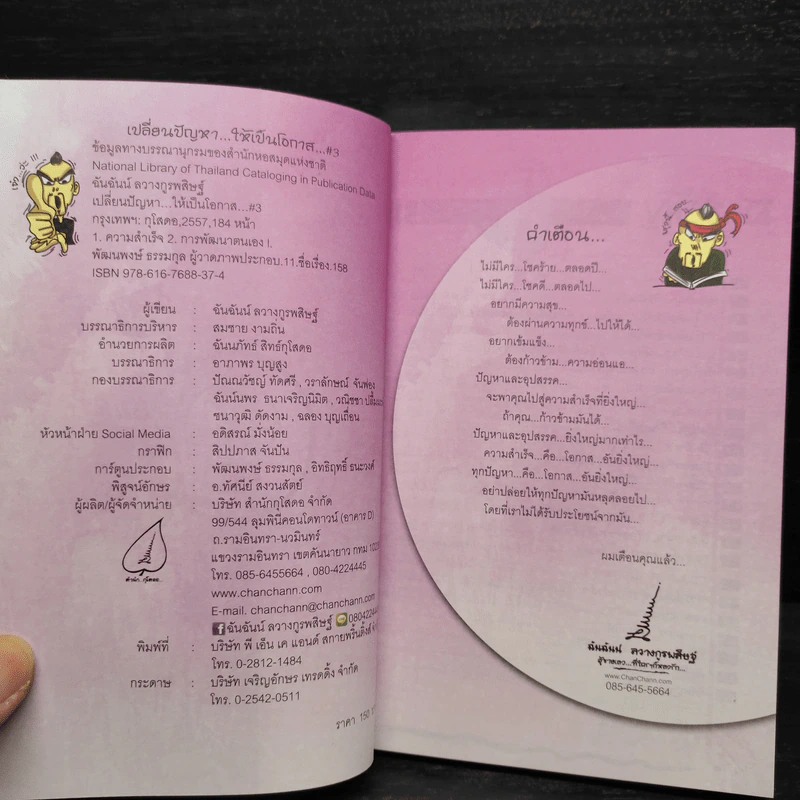 เปลี่ยนปัญหา...ให้เป็นโอกาส...#3
ข้อมูลทางบรรณานุกรมของสำนักหอสมุดแห่งชาติ
National Library of Thailand Cataloging in Publication Data
ฉันฉันน์ ลวางกูรพสิษฐ์
เปลี่ยนปัญหา...ให้เป็นโอกาส...#3
กรุงเทพฯ: กุโสดอ,2557,184 หน้า
1. ความสำเร็จ 2. การพัฒนาตนเอง I.
พัฒนพงษ์ ธรรมกุล ผู้วาดภาพประกอบ.11.ชื่อเรื่อง.158
ISBN 978-616-7688-37-4
ผู้เขียน : ฉันฉันน์ ลวางกูรพสิษฐ์
บรรณาธิการบริหาร : สมชาย งามถิ่น
อำนวยการผลิต : ฉันนภัทธ์ สิทธ์กุโสดอ
บรรณาธิการ : อาภาพร บุญสูง
กองบรรณาธิการ : ปัณณวัชญ์ ทัดศรี , วราลักษณ์ จันฟอง
ฉันน์นพร ธนาเจริญนิมิต , วณิชชา
ชนาวุฒิ ดัดงาม , ฉลอง บุญเถื่อน
หัวหน้าฝ่าย Social Media : อดิสรณ์ มั่งน้อย
กราฟิก : สิปปภาส จันปัน
การ์ตูนประกอบ : พัฒนพงษ์ ธรรมกุล , อิทธิฤทธิ์ ธนะวงศ์
พิสูจน์อักษร : อ.ทัศนีย์ สงวนสัตย์
ผู้ผลิต/ผู้จัดจำหน่าย : บริษัท สำนักกุโสดอ จำกัด
99/544 ลุมพินีคอนโดทาวน์ (อาคาร D)
ถ.รามอินทรา-นวมินทร์
แขวงรามอินทรา เขตคันนายาว กทม
โทร. 085-6455664 , 080-4224445
www.chanchann.com
E-mail. chanchann@chanchann.com
ฉันฉันน์ ลวางกูรพสิษฐ์
พิมพ์ที่ : บริษัท พี เอ็น เค แอนด์ สกายพริ้นติ้งส์
โทร. 0-2812-1484
กระดาษ : บริษัท เจริญอักษร เทรดดิ้ง จำกัด
โทร. 0-2542-0511
ราคา 150
คำเตือน...
ไม่มีใคร...โชคร้าย...ตลอดปี...
ไม่มีใคร...โชคดี...ตลอดไป...
อยากมีความสุข...
ต้องผ่านความทุกข์...ไปให้ได้...
อยากเข้มแข็ง...
ต้องก้าวข้าม...ความอ่อนแอ...
ปัญหาและอุปสรรค...
จะพาคุณไปสู่ความสำเร็จที่ยิ่งใหญ่...
ถ้าคุณ...ก้าวข้ามมันได้...
ปัญหาและอุปสรรค...ยิ่งใหญ่มากเท่าไร...
ความสำเร็จ...คือ...โอกาส...อันยิ่งใหญ่...
ทุกปัญหา...คือ...โอกาส...อันยิ่งใหญ่...
อย่าปล่อยให้ทุกปัญหามันหลุดลอยไป...
โดยที่เราไม่ได้รับประโยชน์จากมัน...
ผมเตือนคุณแล้ว...
ฉันฉันน์ ลวางกูรพสิษฐ์
www.ChanChann.com
085-645-5664